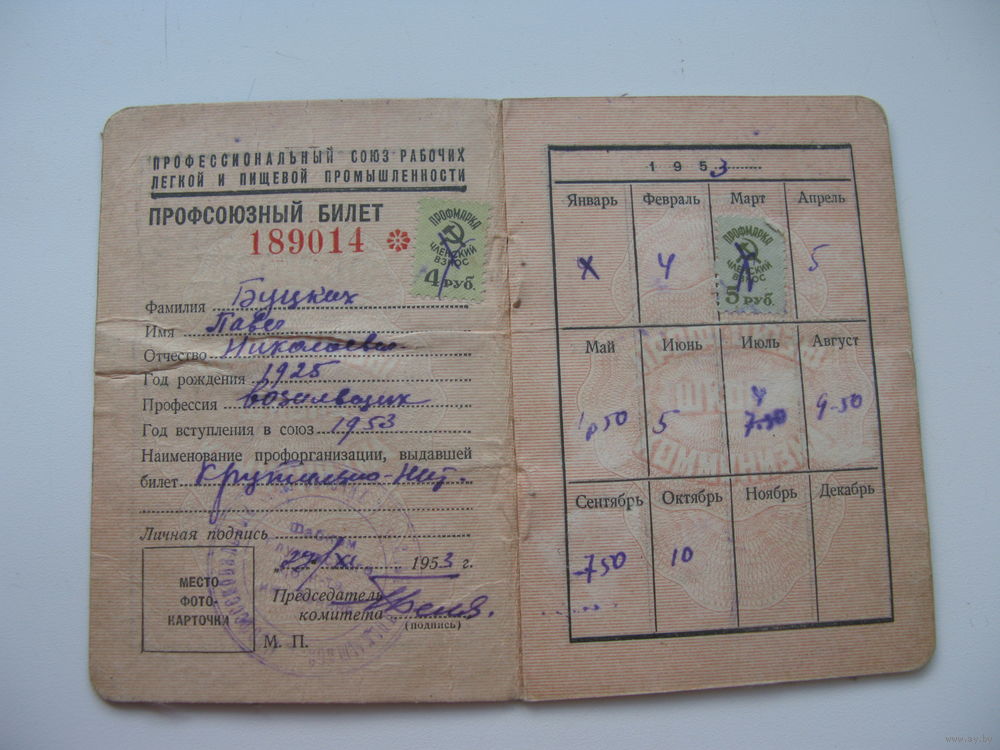 ПРОФЕССИОНАЛЬНЫЙ СОЮЗ РАБОЧИХ
ЛЕГКОЙ И ПИЩЕВОЙ ПРОМЫШЛЕННОСТИ
ПРОФСОЮЗНЫЙ БИЛЕТ
189014
ПРОФМАРКА
ЧЛЕНСКИЙ
ВЗНОС
4 РУБ.
Фамилия Буцких
Имя Павел
Отчество Николаевич
Год рождения 1925
Профессия
Год вступления в союз 1953
Наименование профорганизации, выдавшей
билет Крутильно-Нит.
Личная подпись
"27/XI 1953 г.
Председатель
комитета
(подпись)
МЕСТО
ФОТО-
КАРТОЧКИ
М. П.
1953
Январь Февраль Март Апрель
х 4 5
ПРОФМАРКА
ЧЛЕНСКИЙ
ВЗНОС
5 РУБ.
Май Июнь Июль Август
1р50 5 4 7-50 9-50
ШКОЛА
КОММУНИЗМА
Сентябрь Октябрь Ноябрь Декабрь
750 10
www.ay.by